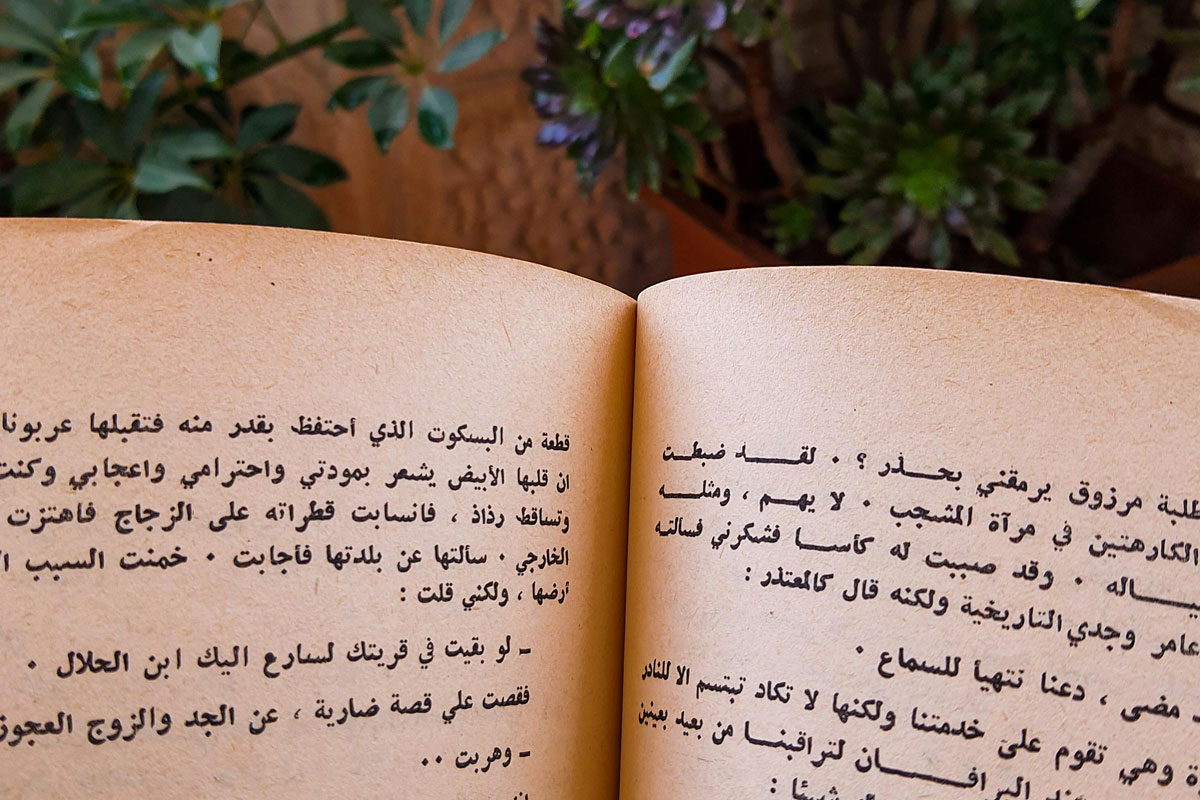 طلبة مرزوق يرمقني بحـــذر ؟ ٠ لقــــد ضبطت
الكارهتين في مرآة المشجب ٠ لا يهــم ، ومثلــه
وقد صببت له كأســا فشكرني فسألتــه
عامر وجدي التاريخية ولكنه قال كالمعتذر :
مضى ، دعنا نتهيأ للسماع ٠
وهي تقوم على خدمتنا ولكنها لا تكاد تبتسم الا للنادر
البرافــــان لتراقبنــا من بعيد بعينين
شيئا :
قطعة من البسكوت الذي أحتفظ بقدر منه فتقبلها عربونا
ان قلبها الأبيض يشعر بمودتي واحترامي واعجابي وكنت
وتساقط رذاذ ، فانسابت قطراته على الزجاج فاهتزت
الخارجي ٠ سألتها عن بلدتها فأجابت ٠ خمنت السبب
أرضها ، ولكني قلت :
– لو بقيت في قريتك لسارع اليك ابن الحلال ٠
فقصت علي قصة ضارية ، عن الجد والزوج العجوز
– وهربت ٠٠